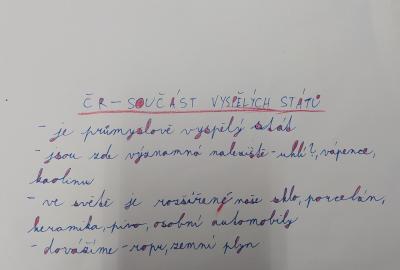 ČR - SOUČÁST VYSPĚLÝCH STÁTŮ
- je průmyslově vyspělý stát
- jsou zde významná naleziště - uhlí?, vápence,
kaolinu
- ve světě je rozšířené naše sklo, porcelán,
keramika, pivo, osobní automobily
- dovážíme - ropu, zemní plyn